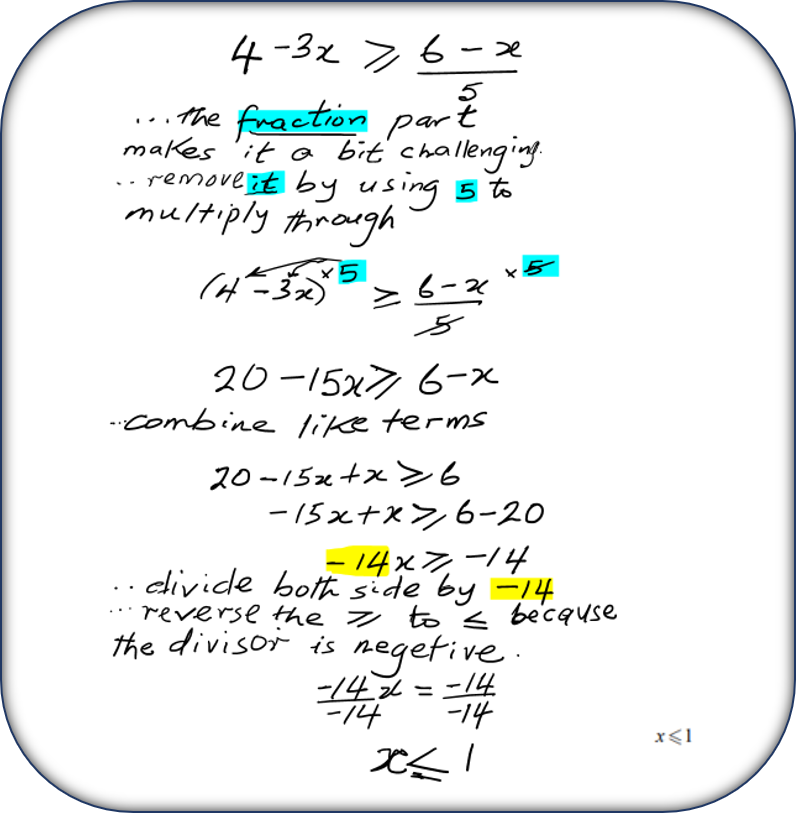 4 -3x ⩾ 6 - x
5
...the fraction part
makes it a bit challenging.
..remove it by using 5 to
multiply through
(4 -3x) × 5 ≥ 6-x × 5
5
20 -15x ⩾ 6-x
..combine like terms
20 -15x +x ⩾ 6
-15x +x ⩾ 6-20
-14x ⩾ -14
..divide both side by -14
...reverse the ⩾ to ≤ because
the divisor is negetive.
-14x = -14
-14 -14
x⩽1
x ≤ 1